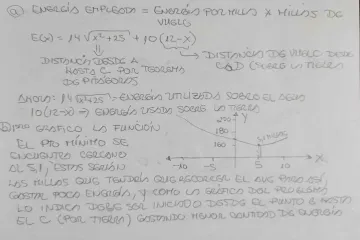 ② ENERGÍA EMPLEADA = ENERGÍA POR MILLA × MILLAS DE VUELO
E(x) = 14√x²+25 + 10(12-x)
DISTANCIA DESDE A HASTA C POR TEOREMA DE PITÁGORAS
DISTANCIA DE VUELO DESDE C A D (SOBRE LA TIERRA
AHORA: 14√x²+25 = ENERGÍA UTILIZADA SOBRE EL AGUA
10(12-x) ⇒ ENERGÍA USADA SOBRE LA TIERRA
GRAFICO LA FUNCIÓN.
EL PTO MÍNIMO SE
ENCUENTRA CERCANO
AL 5,1, ESTAS SERÍAN
LAS MILLAS QUE TENDRÍA QUE RECORRER EL AVE PARA ASÍ,
GASTAR POCA ENERGÍA, Y COMO LA GRÁFICA DEL PROBLEMA
LO INDICA DEBE SER INICIADO DESDE EL PUNTO B HASTA
EL C (POR TIERRA) GASTANDO MENOR CANTIDAD DE ENERGÍA
Y
200
180
160
-10 -5 5 10 X